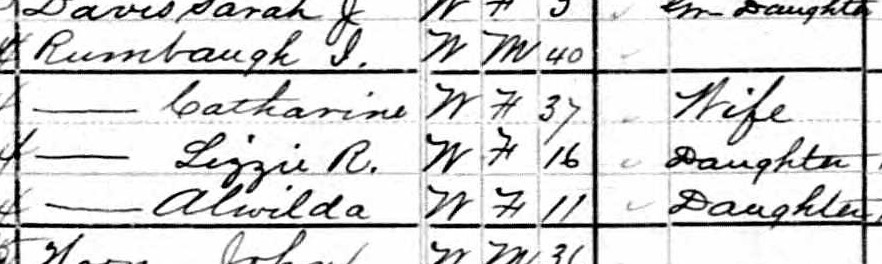 Davis Sarah J W F 3 Gr Daughter
Rumbaugh I. W M 40
—— Catharine W F 37 Wife
—— Lizzie R. W F 16 Daughter
—— Alwilda W F 11 Daughter
John W M 31